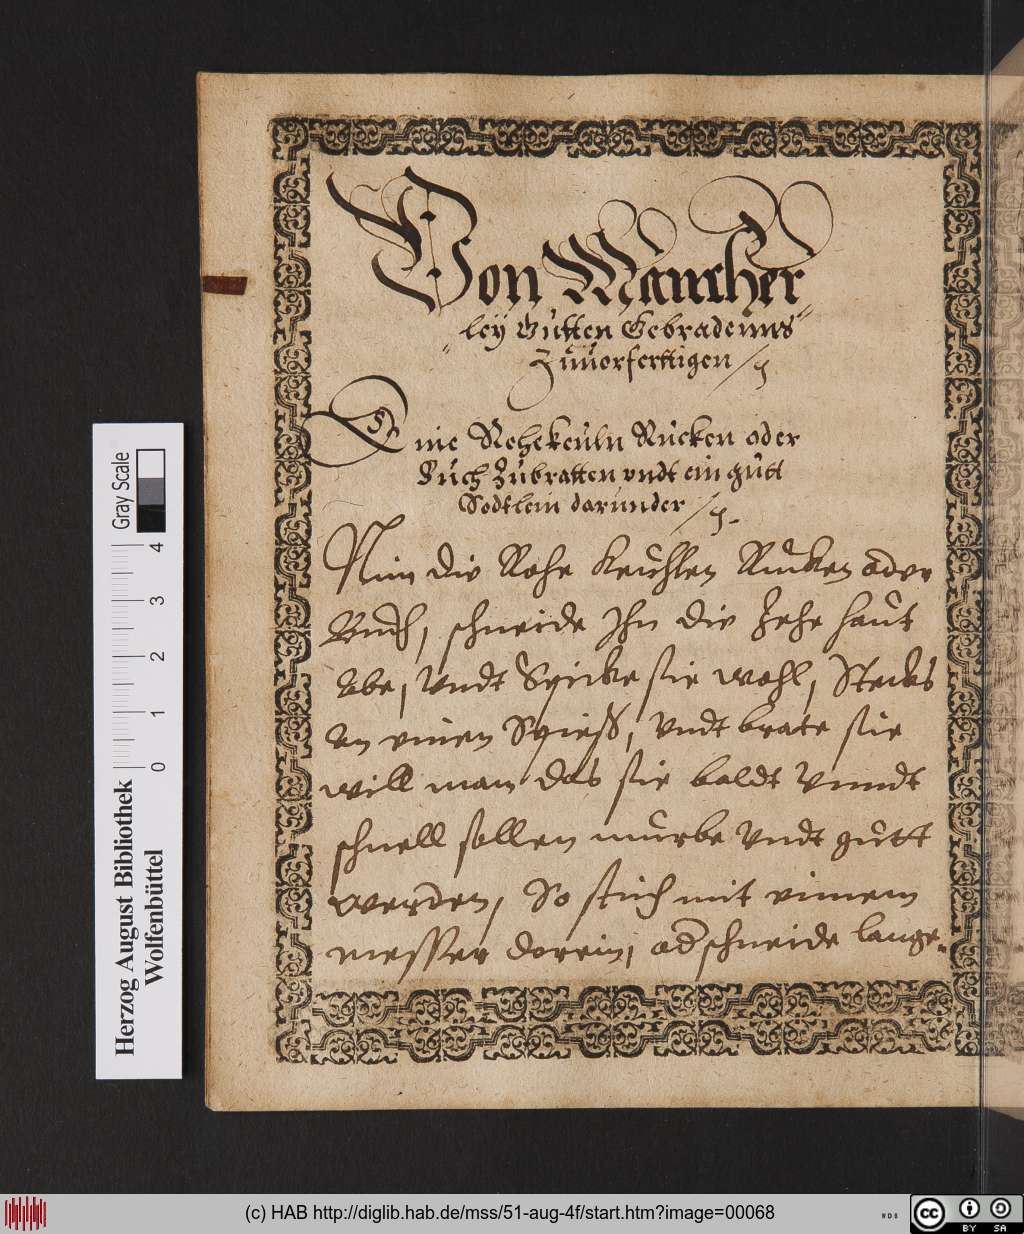 Von Mancher
ley Gutten Gebradenns
Zuuorferttigen
Eine Rehekeuln Rücken oder
Buch Zubratten vndt ein gutt
Sodtlein darunder
Nim die Rehe keuhlen Rucken oder
Buch, schneide Ihn die Zehe haut
Abe, Vndt Spicke sie wohl, Stecks
An einen Spieß, Vndt brate sie
will man das sie baldt Vnndt
schnell sollen murbe Vndt gutt
werden, So stich mit einem
messer dorein, od schneide lange
Herzog August Bibliothek
Wolfenbüttel
Gray Scale
0 1 2 3 4
(c) HAB http://diglib.hab.de/mss/51-aug-4f/start.htm?image=00068
WDB
cc BY SA